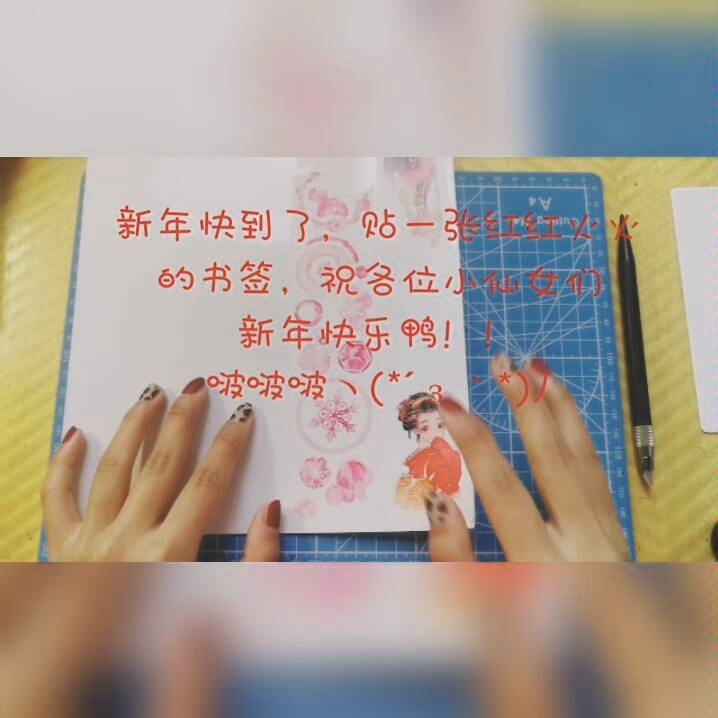 新年快到了，贴一张红红火火
的书签，祝各位小仙女们
新年快乐鸭！！
啵啵啵ヽ(*´з｀*)ﾉ
A4